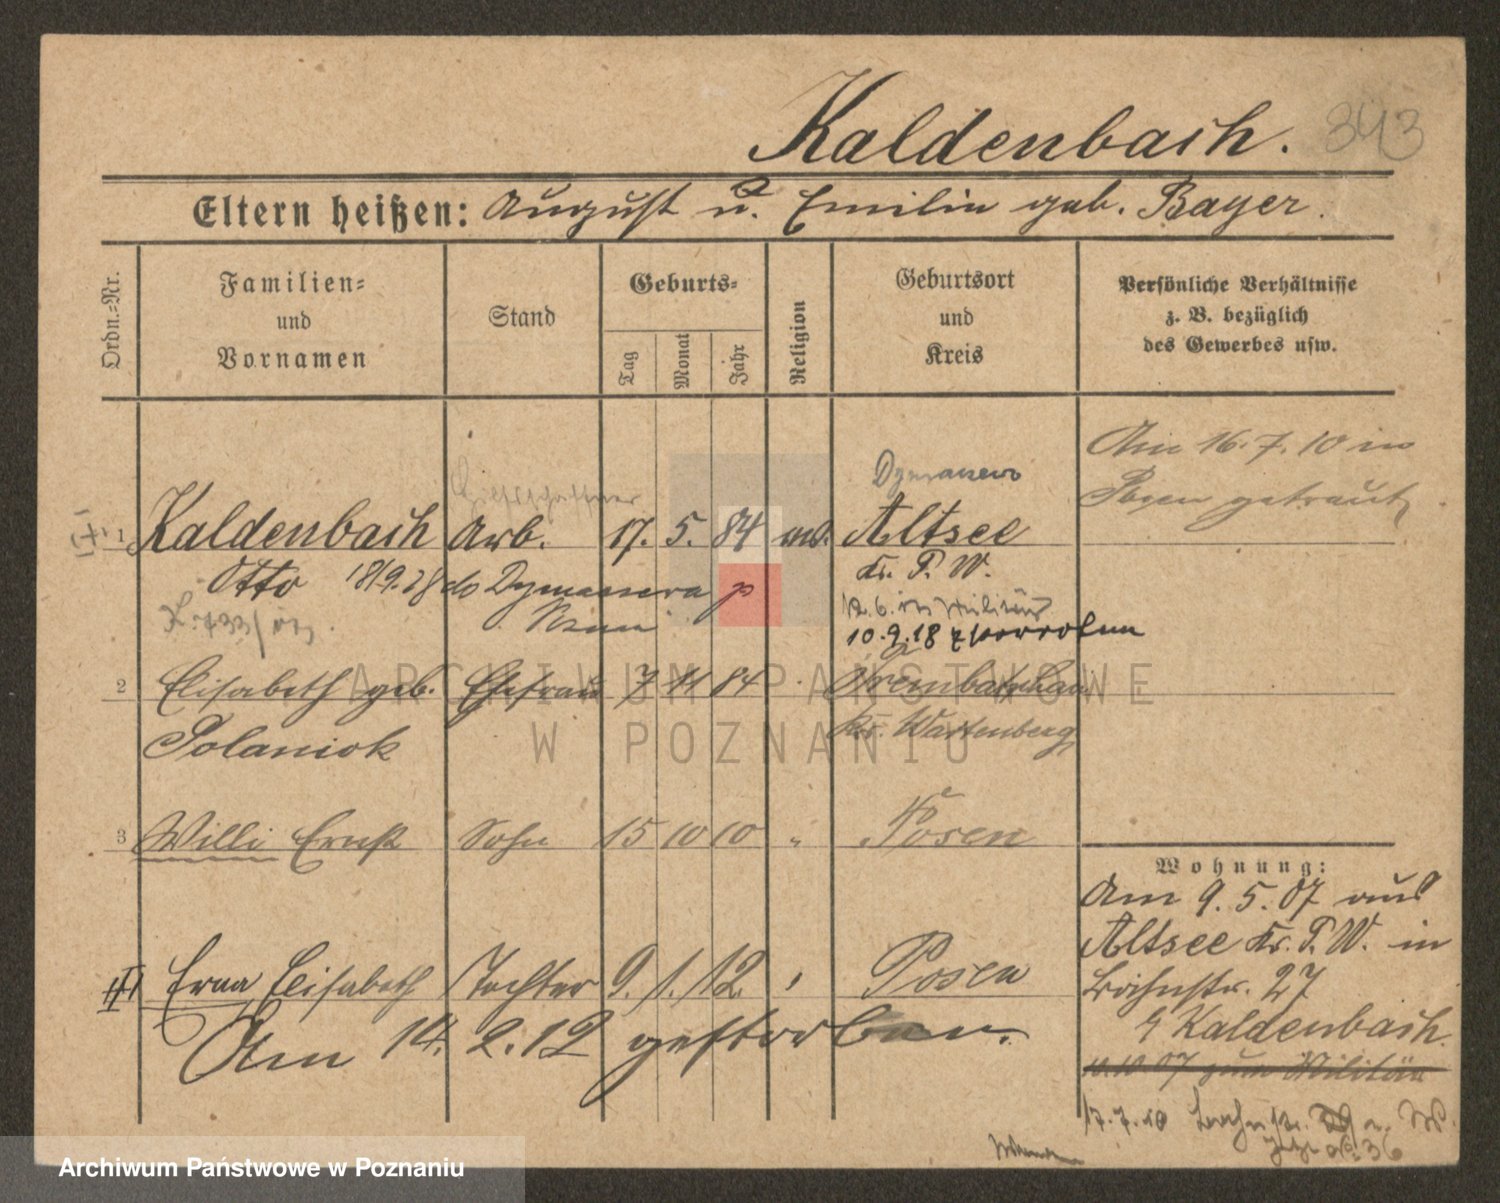 Kaldenbach. 343
Eltern heißen: August u. Emilie geb. Bayer.
Ordn.-Nr.
Familien-
und
Vornamen
Stand
Geburts-
Tag
Monat
Jahr
Religion
Geburtsort
und
Kreis
Persönliche Verhältnisse
z. B. bezüglich
des Gewerbes usw.
Am 16.7.10 in
Posen getraut
1 Kaldenbach Arb. 17. 5. 84 Altsee
Otto 18/9.28 do p Kr. P. W.
12.6. Militär
10.9.18
2 Elisabeth geb. Ehefrau 7 11 84
Polaniok Kr. Wartenberg
3 Willi Ernst Sohn 15 10 10 " Posen
Wohnung:
Am 9.5.07 aus
Altsee Kr. P. W. in
Bahnstr. 27
b Kaldenbach.
10.10 07 zum Militär
Erna Elisabeth Tochter 9. 1. 12 Posen
Am 14. 2. 12 gestorben.
17.7.10 36
ARCHIWUM PAŃSTWOWE
W POZNANIU
Archiwum Państwowe w Poznaniu